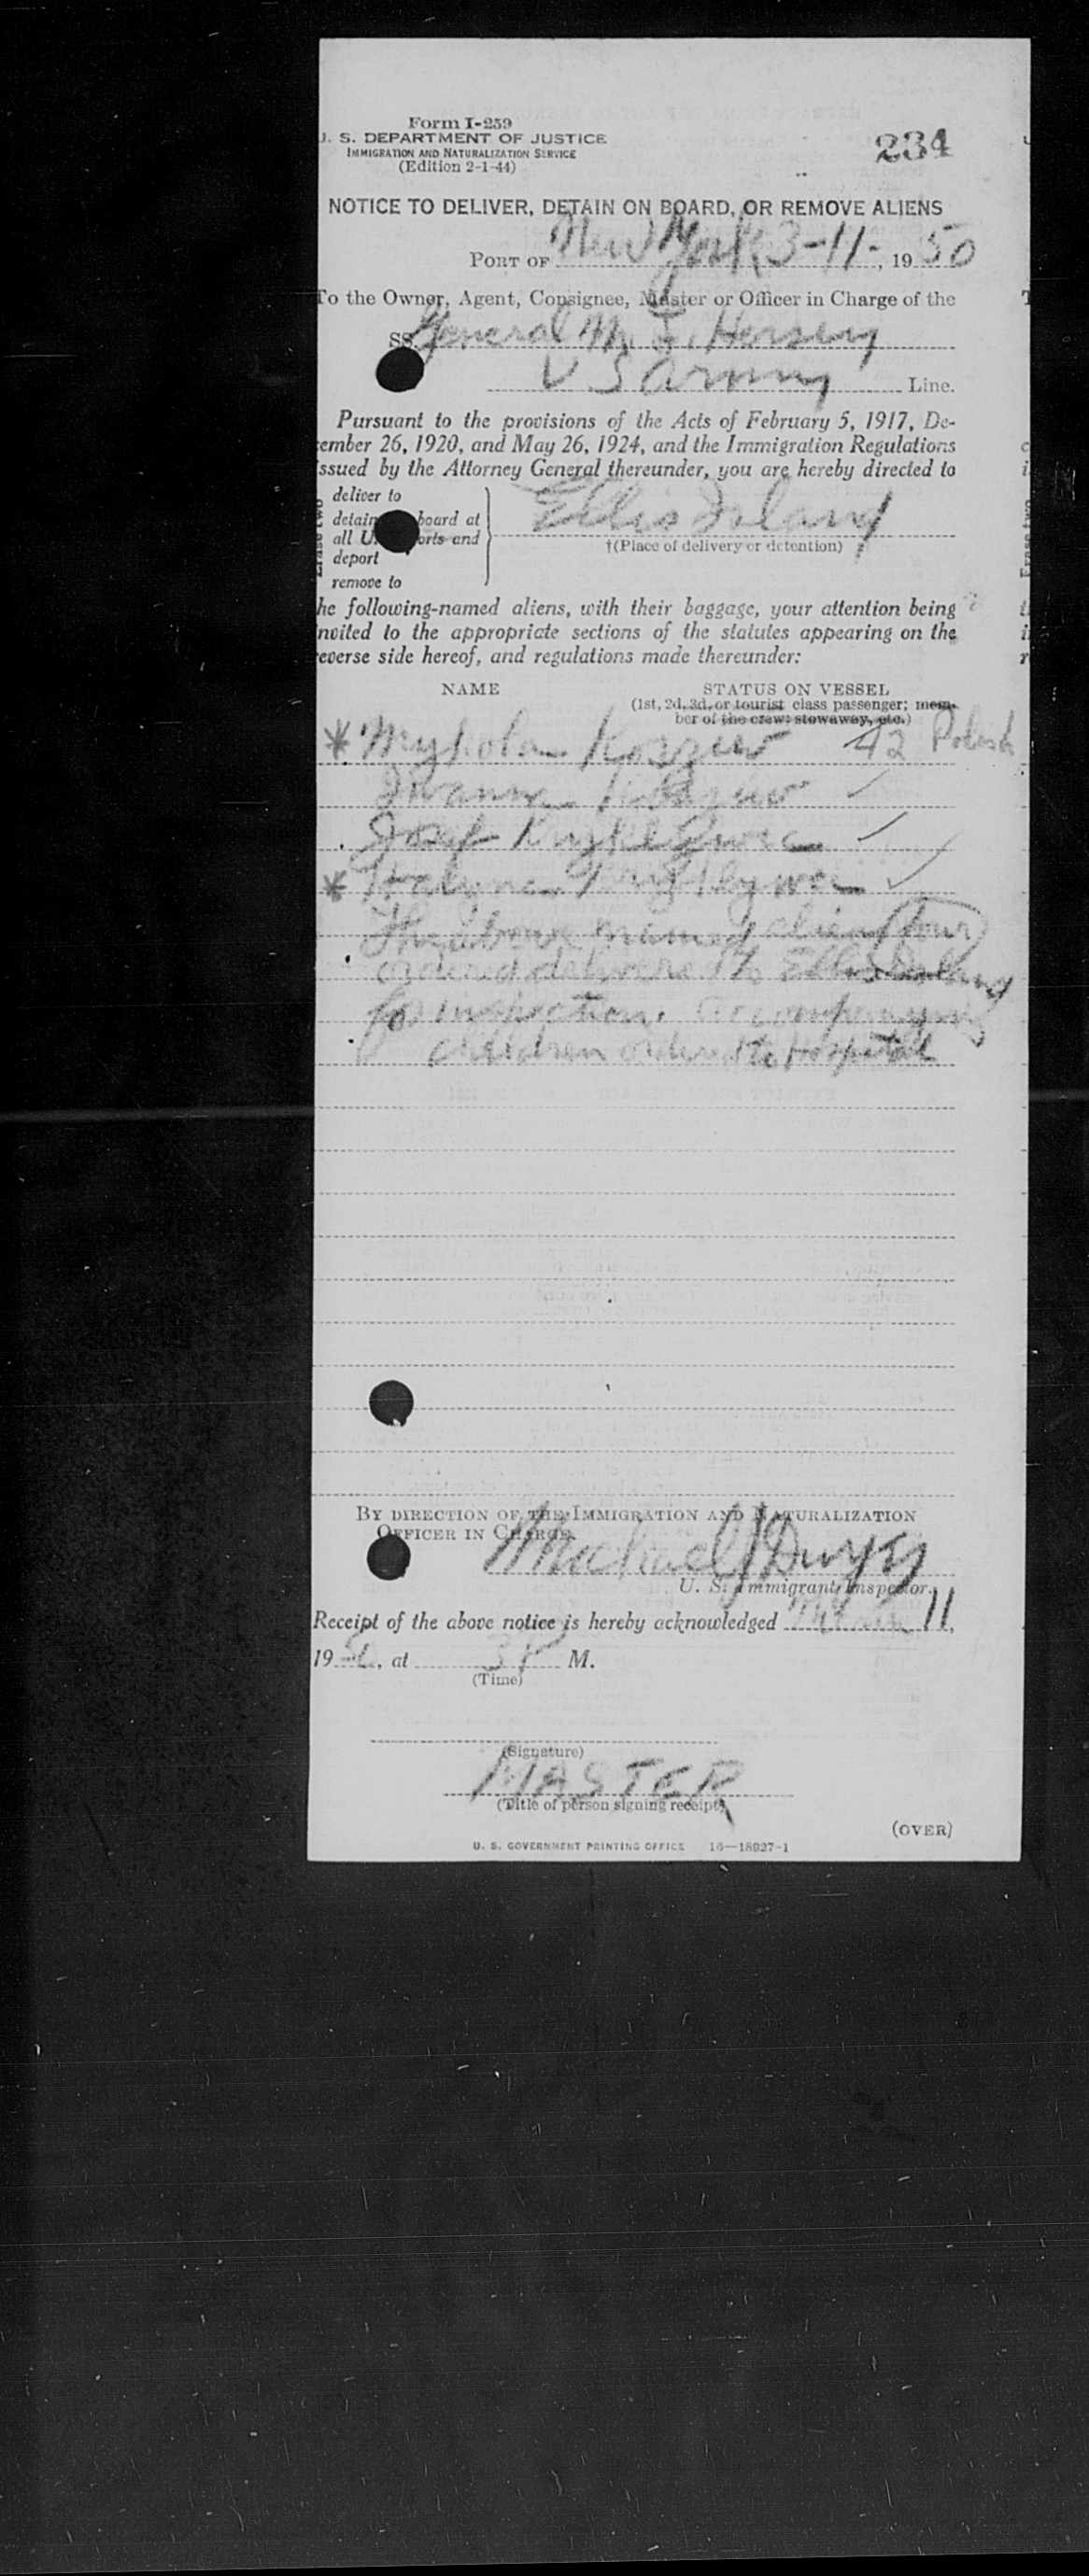 Form I-259
U. S. DEPARTMENT OF JUSTICE
IMMIGRATION AND NATURALIZATION SERVICE
(Edition 2-1-44)
234
NOTICE TO DELIVER, DETAIN ON BOARD, OR REMOVE ALIENS
PORT OF New York, 3-11-, 1950
To the Owner, Agent, Consignee, Master or Officer in Charge of the
SS General M. L. Hersey
U S Army Line.
Pursuant to the provisions of the Acts of February 5, 1917, De-
cember 26, 1920, and May 26, 1924, and the Immigration Regulations
issued by the Attorney General thereunder, you are hereby directed to
deliver to
detain board at
all U. ports and
deport
remove to
Ellis Island
†(Place of delivery or detention)
the following-named aliens, with their baggage, your attention being
invited to the appropriate sections of the statutes appearing on the
reverse side hereof, and regulations made thereunder:
NAME STATUS ON VESSEL
(1st, 2d, 3d, or tourist class passenger; mem-
ber of the crew; stowaway, etc.)
* Mykola 42 Polish
✓
Josef ✓
* ✓
The above named aliens (four)
ordered delivered to Ellis Island
for inspection. Accompanying
children ordered to Hospital
BY DIRECTION OF THE IMMIGRATION AND NATURALIZATION
OFFICER IN CHARGE.
Michael J Dwyer
U. S. Immigrant Inspector.
Receipt of the above notice is hereby acknowledged March 11,
19 , at 3 P M.
(Time)
(Signature)
MASTER
(Title of person signing receipt)
(OVER)
U. S. GOVERNMENT PRINTING OFFICE 16—18927-1